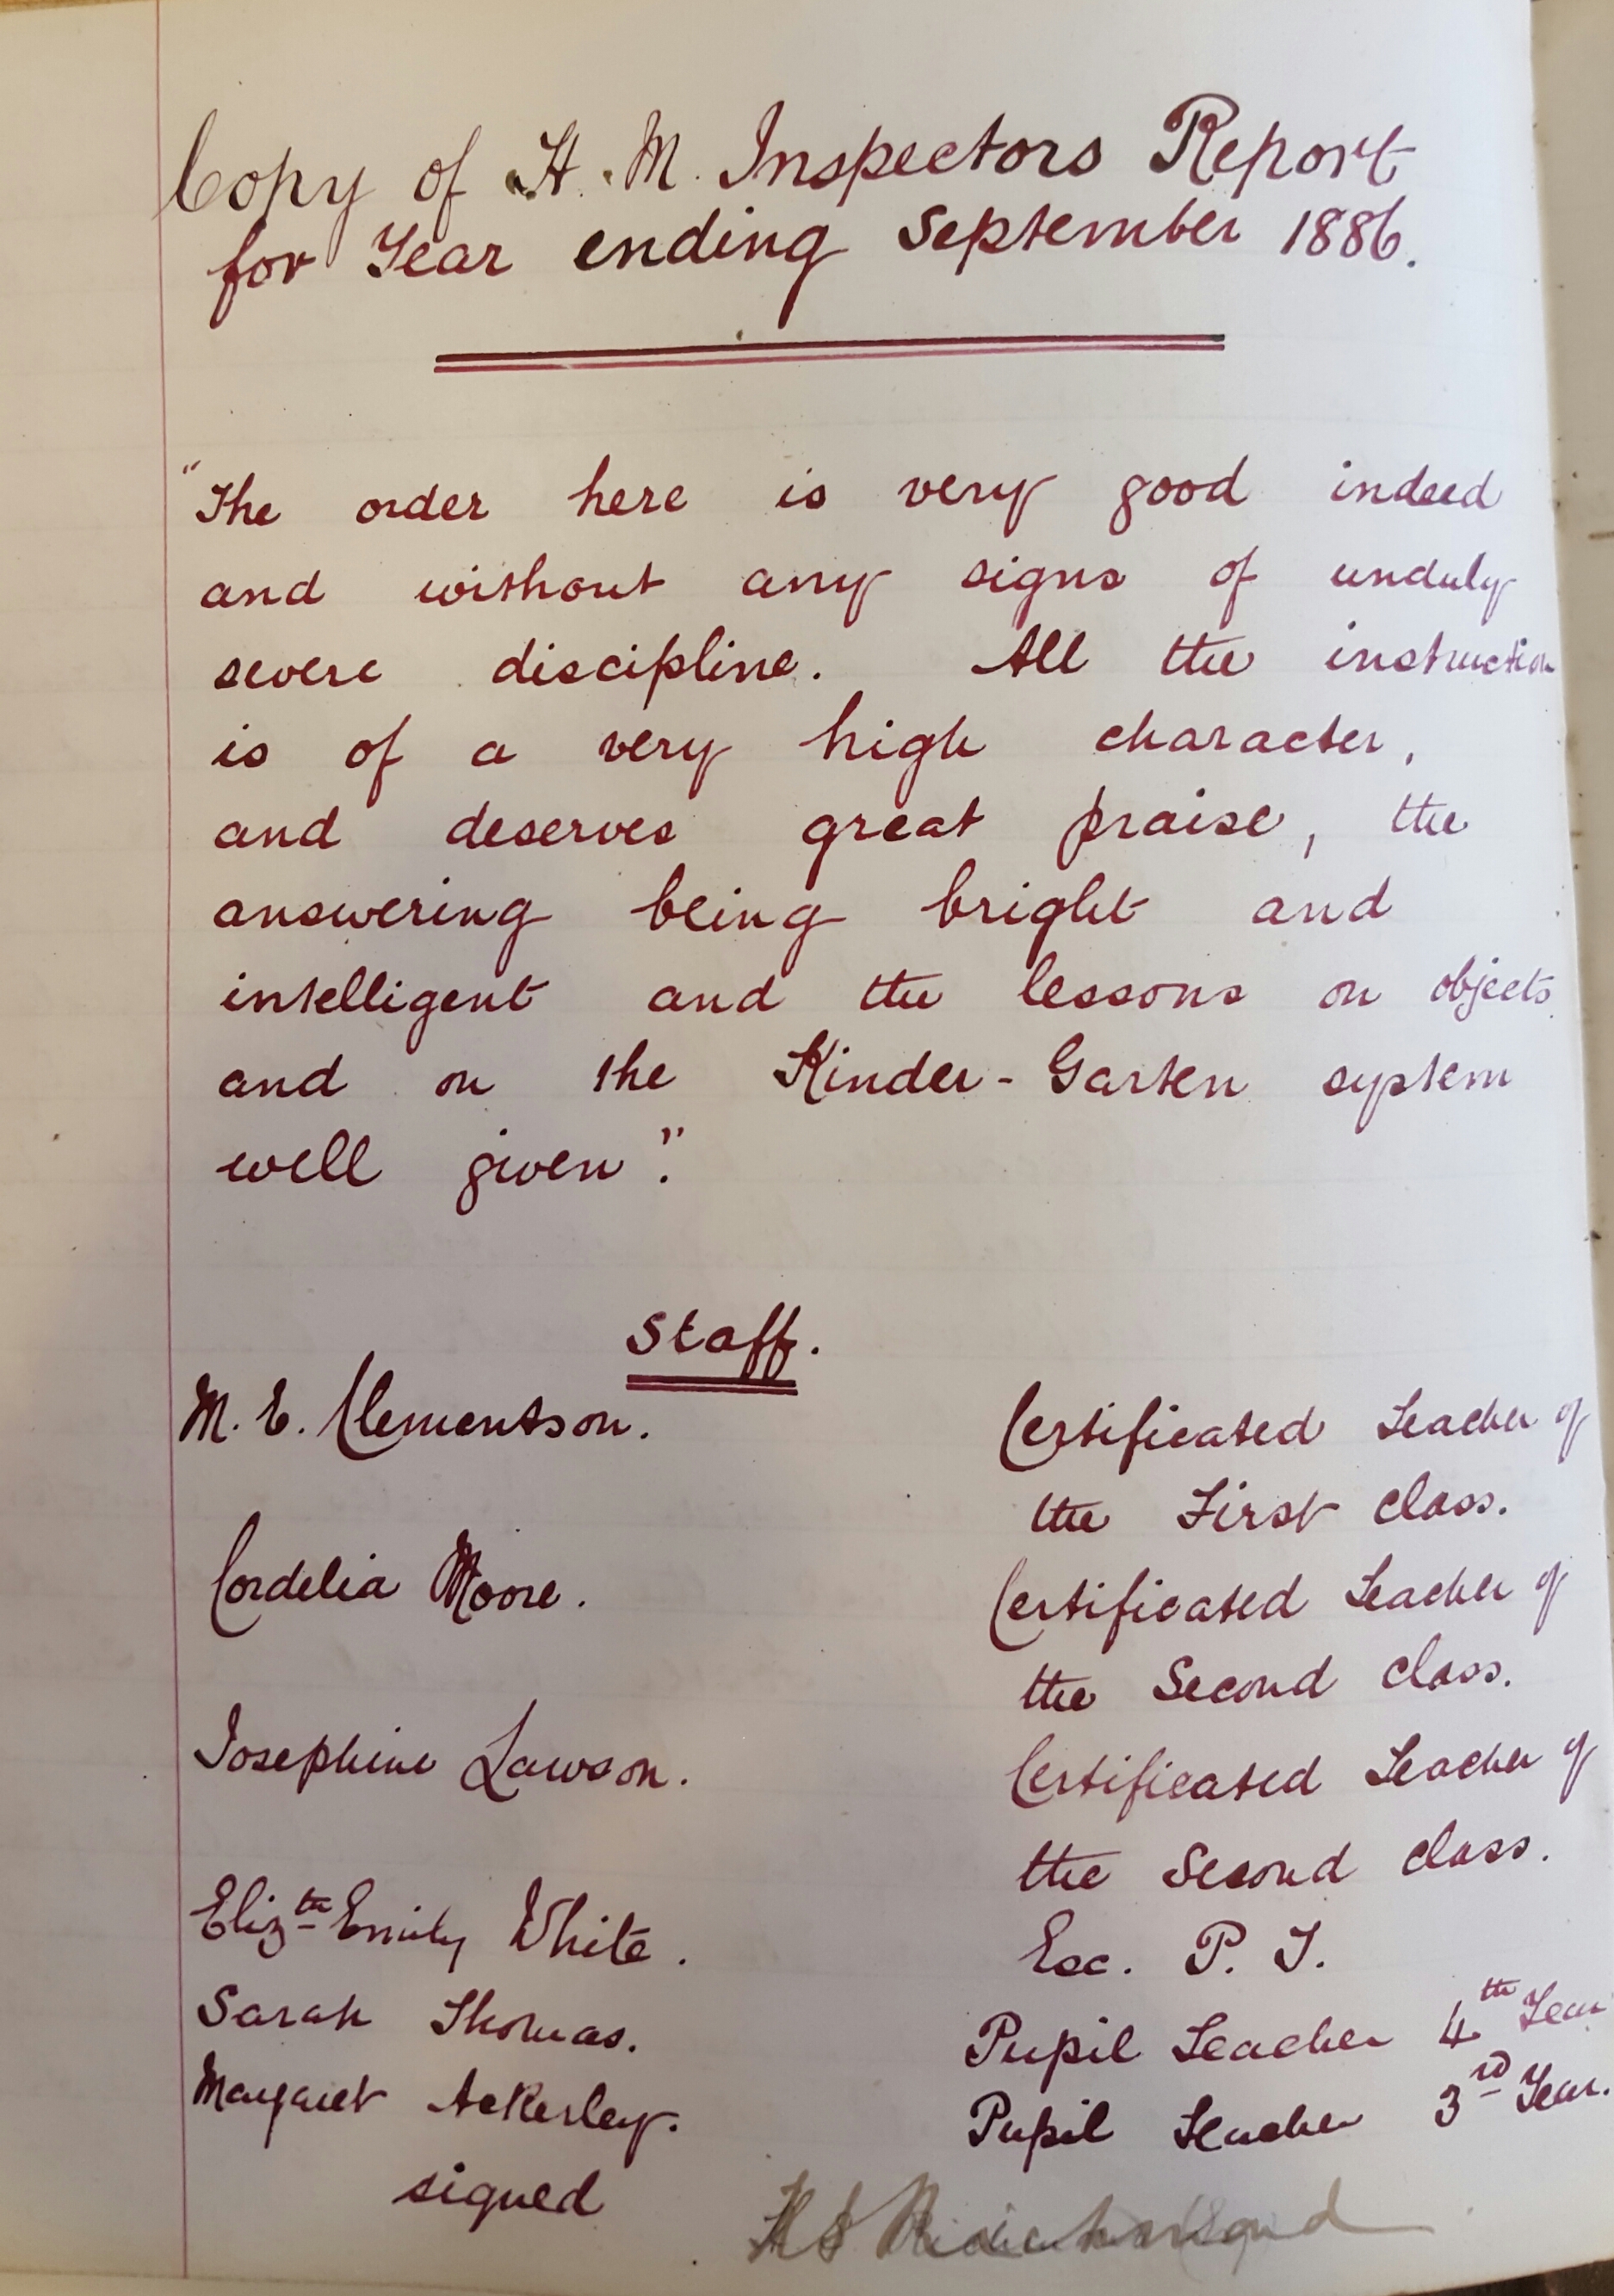 Copy of H. M. Inspectors Report
for Year ending September 1886.
"The order here is very good indeed
and without any signs of unduly
severe discipline. All the instruction
is of a very high character,
and deserves great praise, the
answering being bright and
intelligent and the lessons on objects
and on the Kinder-Garten system
well given".
Staff.
M. E. Clementson. Certificated Teacher of
the First class.
Cordelia Moore. Certificated Teacher of
the Second class.
Josephine Lawson. Certificated Teacher of
the Second class.
Elizth Emily White. Esc. P. T.
Sarah Thomas. Pupil Teacher 4th Year
Margaret Ackerley. Pupil Teacher 3rd Year.
signed